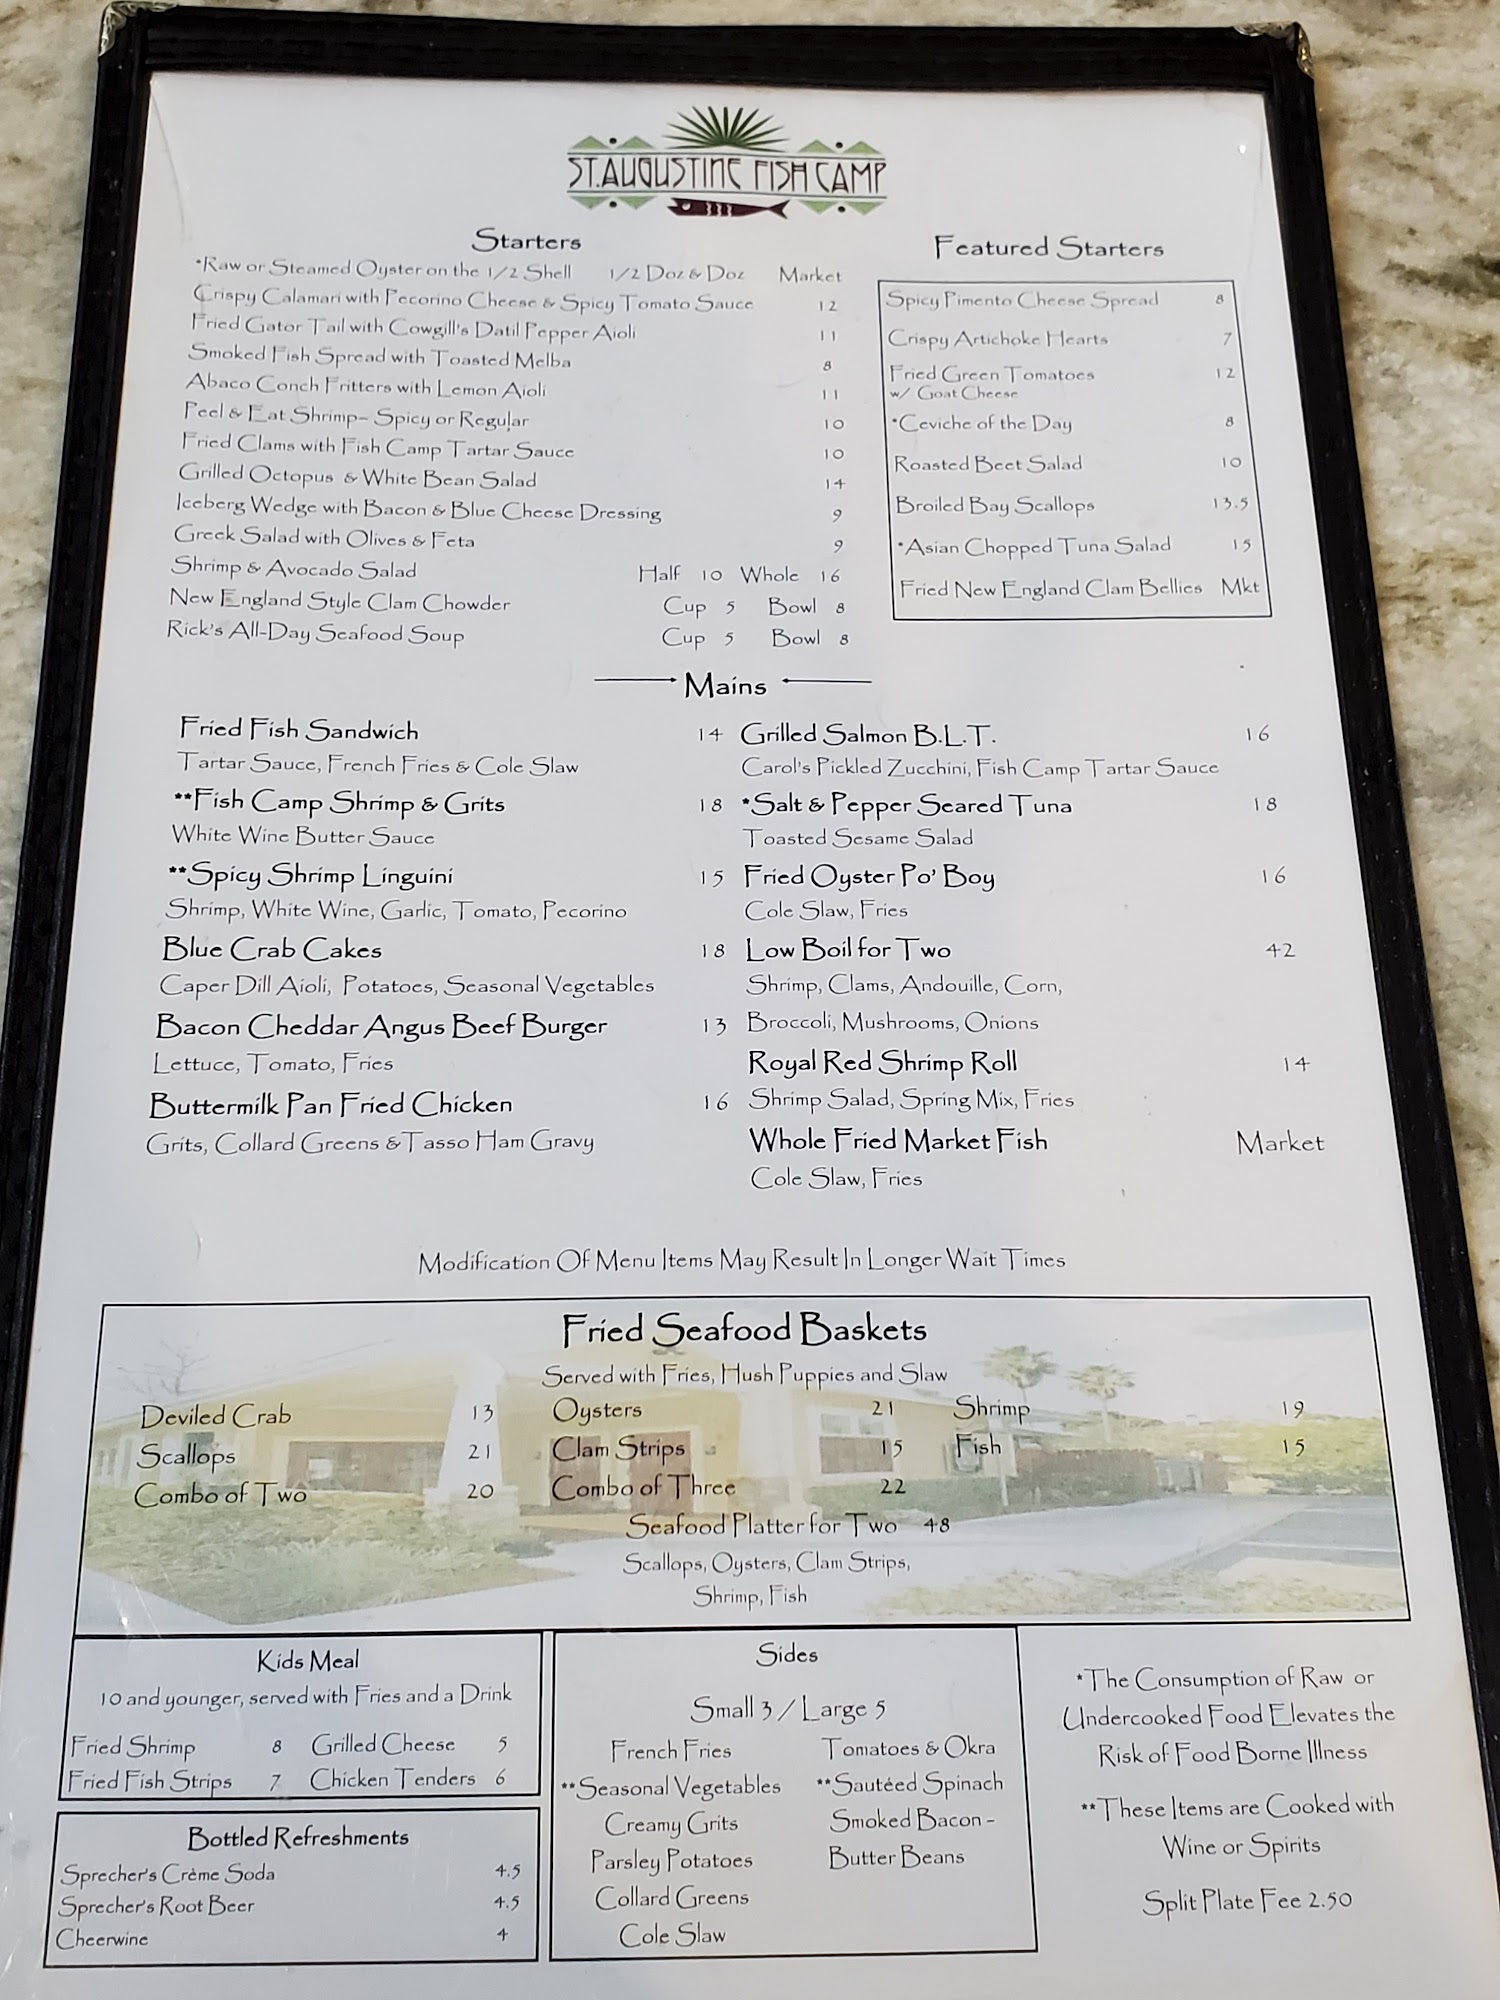 ST. AUGUSTINE FISH CAMP
Starters
*Raw or Steamed Oyster on the 1/2 Shell 1/2 Doz & Doz Market
Crispy Calamari with Pecorino Cheese & Spicy Tomato Sauce 12
Fried Gator Tail with Cowgill's Datil Pepper Aioli 11
Smoked Fish Spread with Toasted Melba 8
Abaco Conch Fritters with Lemon Aioli 11
Peel & Eat Shrimp– Spicy or Regular 10
Fried Clams with Fish Camp Tartar Sauce 10
Grilled Octopus & White Bean Salad 14
Iceberg Wedge with Bacon & Blue Cheese Dressing 9
Greek Salad with Olives & Feta 9
Shrimp & Avocado Salad Half 10 Whole 16
New England Style Clam Chowder Cup 5 Bowl 8
Rick's All-Day Seafood Soup Cup 5 Bowl 8
Featured Starters
Spicy Pimento Cheese Spread 8
Crispy Artichoke Hearts 7
Fried Green Tomatoes 12
w/ Goat Cheese
*Ceviche of the Day 8
Roasted Beet Salad 10
Broiled Bay Scallops 13.5
*Asian Chopped Tuna Salad 15
Fried New England Clam Bellies Mkt
Mains
Fried Fish Sandwich 14
Tartar Sauce, French Fries & Cole Slaw
**Fish Camp Shrimp & Grits 18
White Wine Butter Sauce
**Spicy Shrimp Linguini 15
Shrimp, White Wine, Garlic, Tomato, Pecorino
Blue Crab Cakes 18
Caper Dill Aioli, Potatoes, Seasonal Vegetables
Bacon Cheddar Angus Beef Burger 13
Lettuce, Tomato, Fries
Buttermilk Pan Fried Chicken 16
Grits, Collard Greens & Tasso Ham Gravy
Grilled Salmon B.L.T. 16
Carol's Pickled Zucchini, Fish Camp Tartar Sauce
*Salt & Pepper Seared Tuna 18
Toasted Sesame Salad
Fried Oyster Po' Boy 16
Cole Slaw, Fries
Low Boil for Two 42
Shrimp, Clams, Andouille, Corn,
Broccoli, Mushrooms, Onions
Royal Red Shrimp Roll 14
Shrimp Salad, Spring Mix, Fries
Whole Fried Market Fish Market
Cole Slaw, Fries
Modification Of Menu Items May Result In Longer Wait Times
Fried Seafood Baskets
Served with Fries, Hush Puppies and Slaw
Deviled Crab 13 Oysters 21 Shrimp 19
Scallops 21 Clam Strips 15 Fish 15
Combo of Two 20 Combo of Three 22
Seafood Platter for Two 48
Scallops, Oysters, Clam Strips,
Shrimp, Fish
Kids Meal
10 and younger, served with Fries and a Drink
Fried Shrimp 8 Grilled Cheese 5
Fried Fish Strips 7 Chicken Tenders 6
Bottled Refreshments
Sprecher's Crème Soda 4.5
Sprecher's Root Beer 4.5
Cheerwine 4
Sides
Small 3 / Large 5
French Fries Tomatoes & Okra
**Seasonal Vegetables **Sautéed Spinach
Creamy Grits Smoked Bacon -
Parsley Potatoes Butter Beans
Collard Greens
Cole Slaw
*The Consumption of Raw or
Undercooked Food Elevates the
Risk of Food Borne Illness
**These Items are Cooked with
Wine or Spirits
Split Plate Fee 2.50